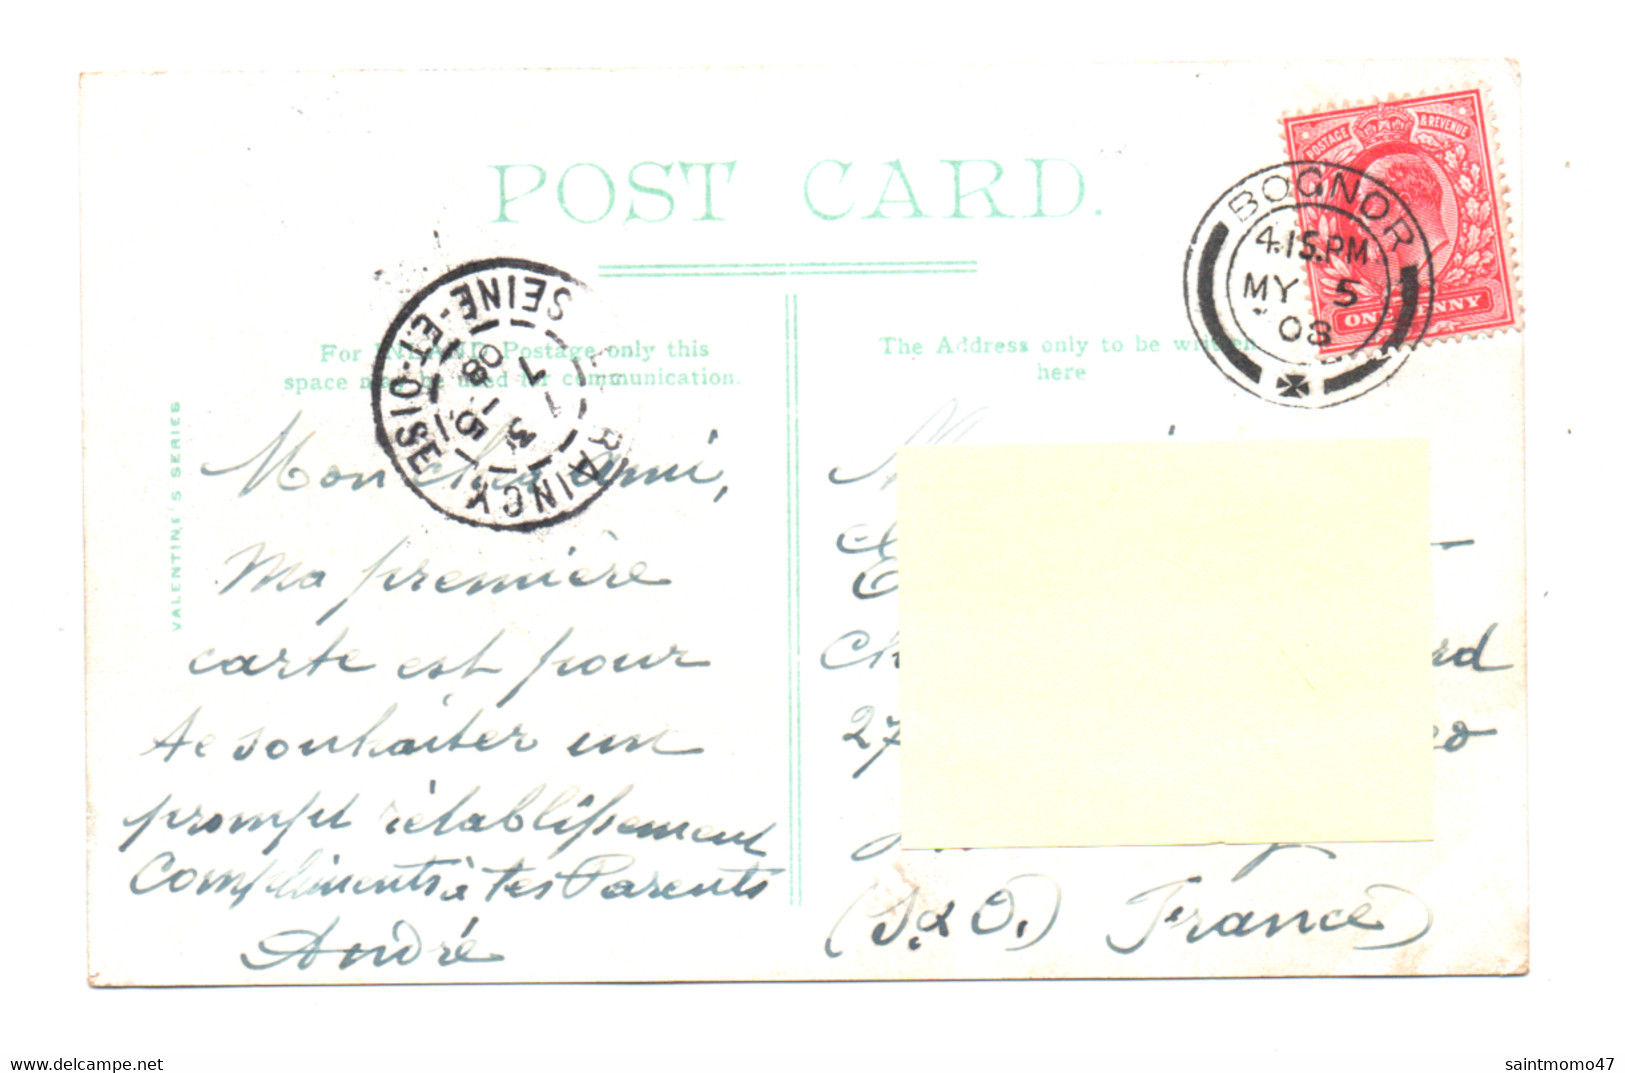 POST CARD.
POSTAGE & REVENUE
ONE PENNY
BOGNOR
4.15.PM
MY 5
08
SEINE-ET-OISE
RAINCY
7
5
08
For INLAND Postage only this
space may be used for communication.
The Address only to be written
here
VALENTINE'S SERIES
Mon cher Ami,
Ma première
carte est pour
te souhaiter un
prompt rétablissement
Compliments à tes Parents
André
27
(S. & O.) France
saintmomo47